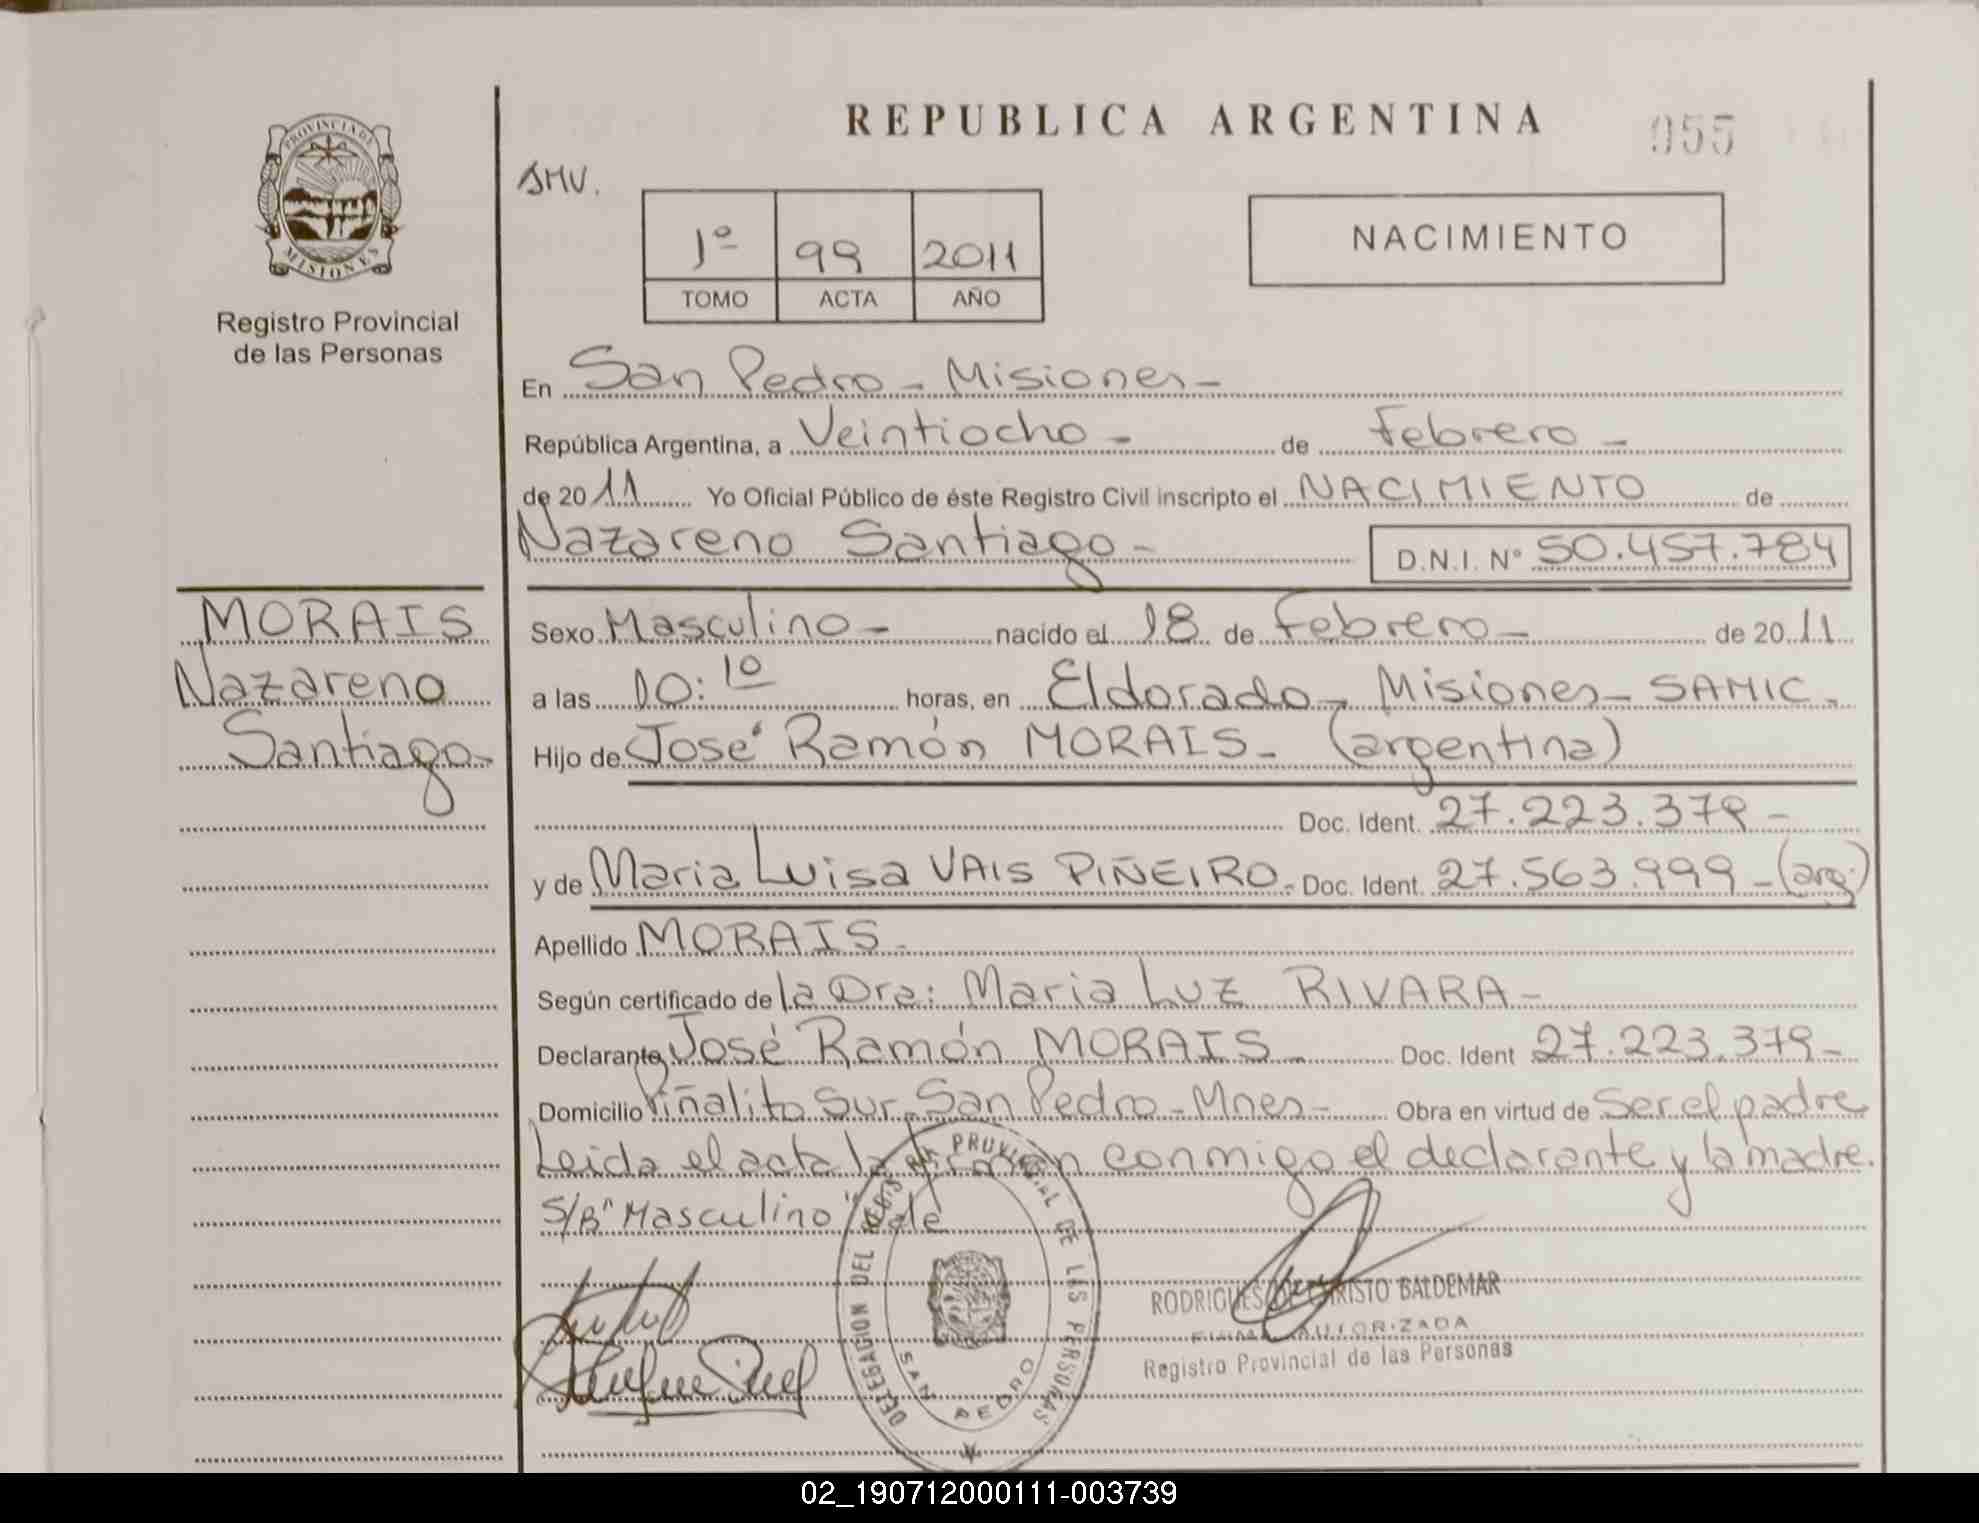 REPUBLICA ARGENTINA
955
PROVINCIA DE
MISIONES
Registro Provincial
de las Personas
JMV.
1º 99 2011
TOMO ACTA AÑO
NACIMIENTO
En San Pedro - Misiones -
República Argentina, a Veintiocho - de Febrero -
de 2011 Yo Oficial Público de éste Registro Civil inscripto el NACIMIENTO de
Nazareno Santiago - D.N.I. Nº 50.457.784
MORAIS
Nazareno
Santiago-
Sexo Masculino - nacido el 18 de Febrero - de 2011
a las 10:10 horas, en Eldorado - Misiones - SAMIC -
Hijo de José Ramón MORAIS - (argentina)
Doc. Ident. 27.223.379 -
y de Maria Luisa VAIS PIÑEIRO - Doc. Ident. 27.563.999 - (arg.)
Apellido MORAIS -
Según certificado de la Dra: Maria Luz RIVARA -
Declarante José Ramón MORAIS - Doc. Ident 27.223.379 -
Domicilio Piñalito Sur - San Pedro - Mnes - Obra en virtud de Ser el padre
Leida el acta la firman conmigo el declarante y la madre.
S/B "Masculino" Vale
DELEGACION DEL REGISTRO PROVINCIAL DE LAS PERSONAS
SAN PEDRO
RODRIGUES DE CHRISTO BALDEMAR
FIRMA AUTORIZADA
Registro Provincial de las Personas
02_190712000111-003739